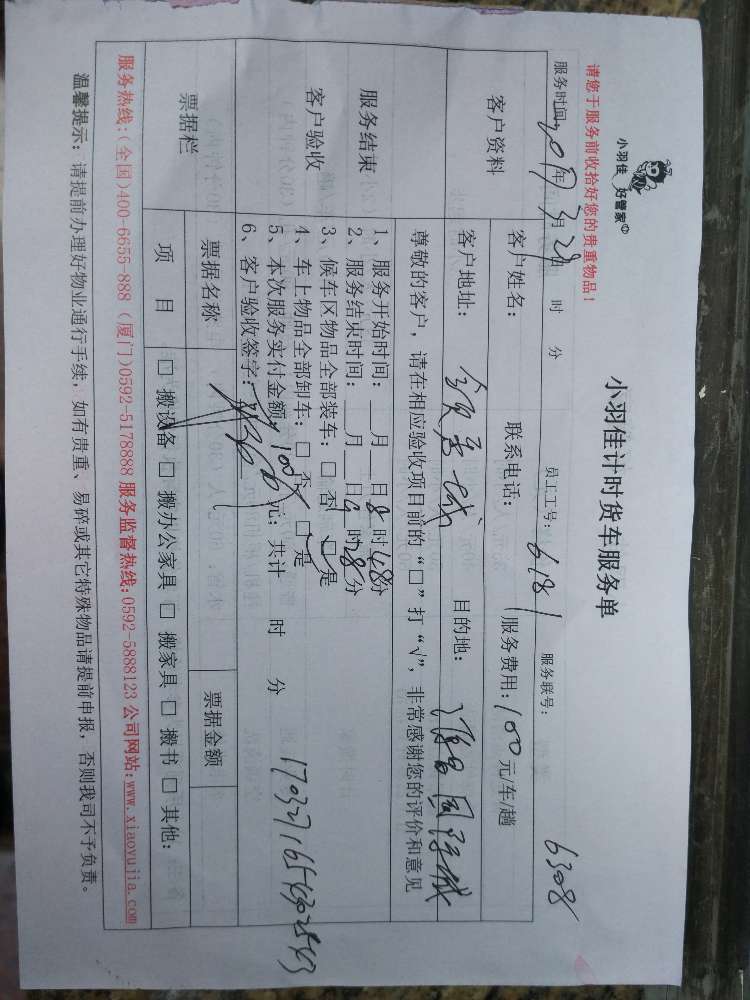 小羽佳 好管家
小羽佳计时货车服务单
请您于服务前收拾好您的贵重物品！
服务时间: 2017年3月28日 时 分 员工工号: 6181 服务联号: 6308
客户资料
客户姓名: 联系电话: 服务费用: 100元/车/趟
客户地址: 目的地:
服务结束
客户验收
尊敬的客户，请在相应验收项目前的“□”打“√”，非常感谢您的评价和意见
1、服务开始时间: __月__日8时48分
2、服务结束时间: __月__日9时28分
3、候车区物品全部装车: □ 否 □ 是
4、车上物品全部卸车: □ 否 □ 是
5、本次服务实付金额 100 元; 共计 时 分
6、客户验收签字:
票据栏
票据名称 票据金额
项 目 □ 搬设备 □ 搬办公家具 □ 搬家具 □ 搬书 □ 其他:
服务热线:(全国)400-6655-888 (厦门)0592-5178888 服务监督热线:0592-5888123 公司网站:www.xiaoyujia.com
温馨提示: 请提前办理好物业通行手续，如有贵重、易碎或其它特殊物品请提前申报，否则我司不予负责。